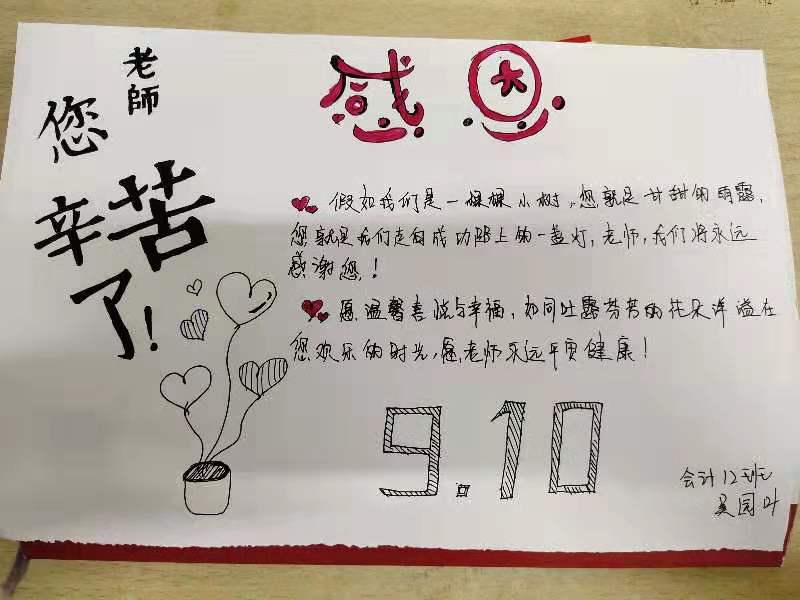 老師
您
辛苦
了!
感恩
假如我们是一棵棵小树，您就是甘甜的雨露，
您就是我们走向成功路上的一盏灯，老师，我们将永远
感谢您！
愿温馨喜悦与幸福，如同吐露芬芳的花朵洋溢在
您欢乐的时光，愿老师永远平安健康！
9.10
会计12班
吴园叶